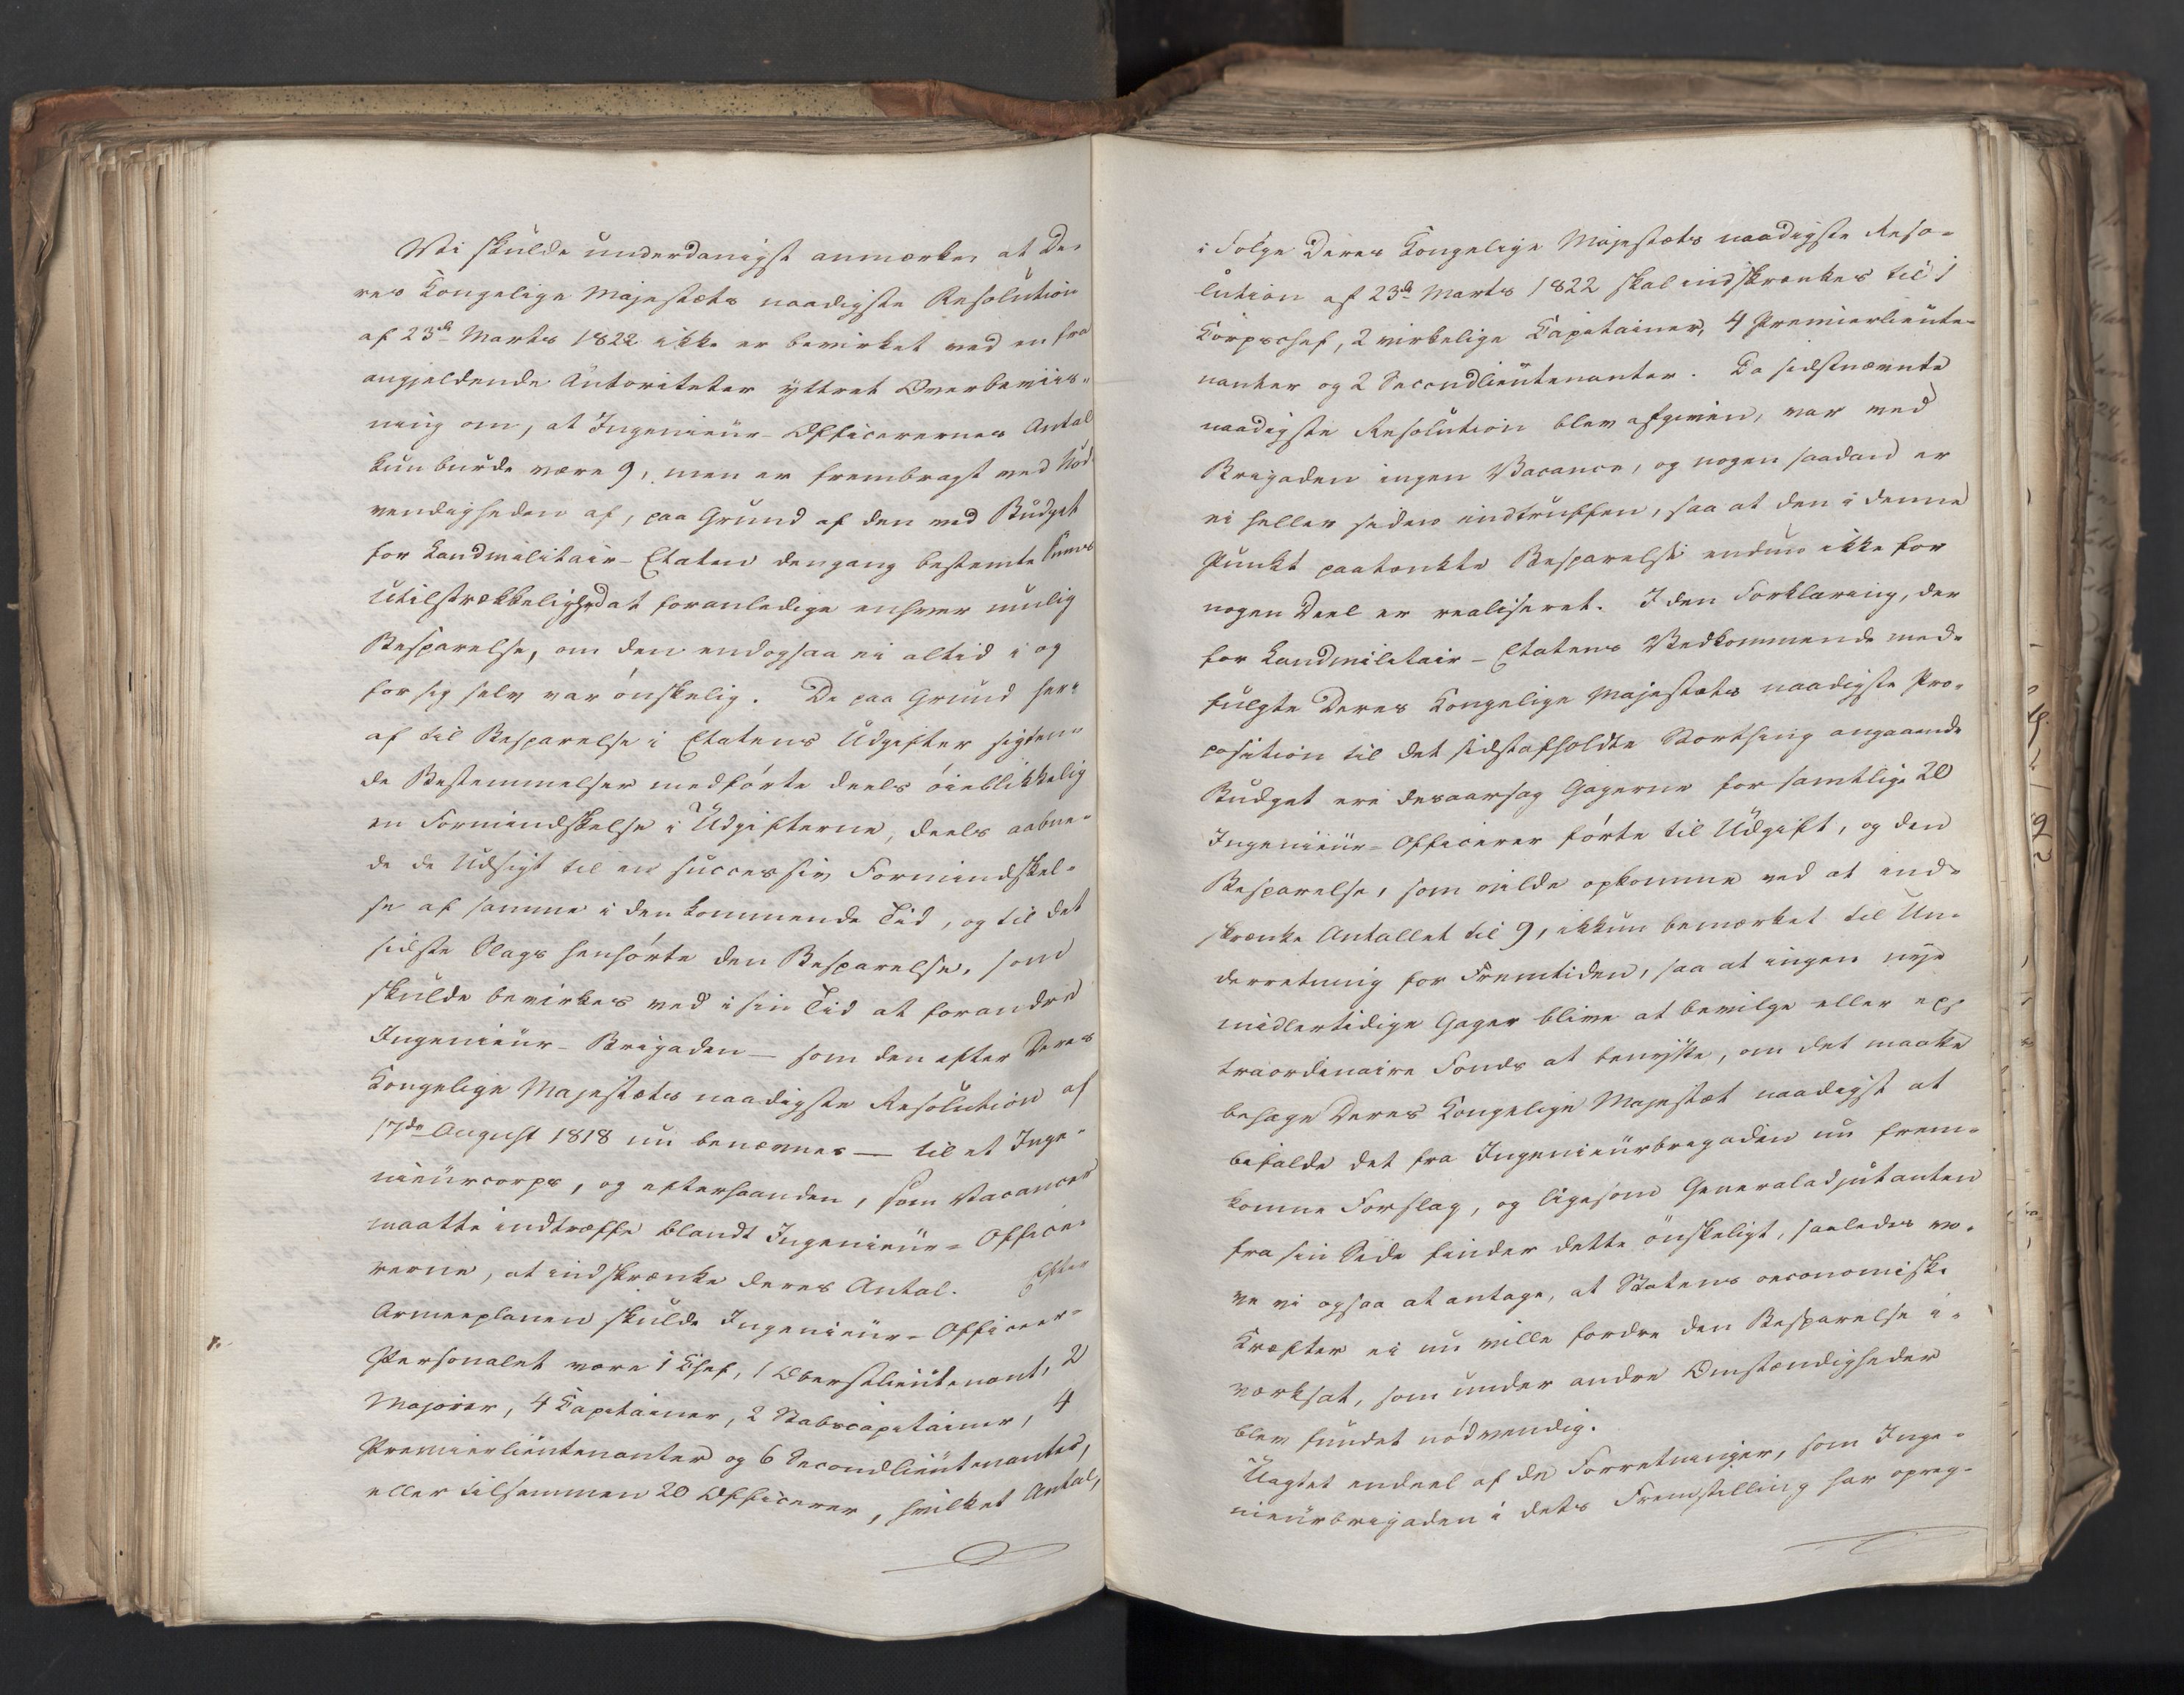 Vi skulde underdanigst anmærke, at De-
res Kongelige Majestæts naadigste Resolution
af 23de Marts 1822 ikke er bevirket ved en fra
angjeldende Autoriteter yttret Overbeviis-
ning om, at Ingenieur-Officerernes Antal
kun burde være 9, men er frembragt ved Nød-
vendigheden af, paa Grund af den ved Budget
for Landmilitair-Etaten dengang bestemte Summes
Utilstrækkelighed at foranledige enhver mulig
Besparelse, om den endogsaa ei altid i og
for sig selv var ønskelig. De paa Grund her-
af til Besparelse i Etatens Udgifter sigten-
de Bestemmelser medførte deels øieblikkelig
en Formindskelse i Udgifterne, deels aabne-
de de Udsigt til en successiv Formindskel-
se af samme i den kommende Tid, og til det
sidste Slags henhørte den Besparelse, som
skulde bevirkes ved i sin Tid at forandre
Ingenieur-Brigaden — som den efter Deres
Kongelige Majestæts naadigste Resolution af
17de August 1818 nu benævnes — til et Inge-
nieurcorps, og efterhaanden, som Vacancer
maatte indtræffe blandt Ingenieur-Office-
rerne, at indskrænke deres Antal. Efter
Armeeplanen skulde Ingenieur-Officeer-
Personalet være 1 Chef, 1 Oberstlieutenant, 2
Majorer, 4 Capitainer, 2 Stabscapitainer, 4
Premierlieutenanter og 6 Secondlieutenanter,
eller tilsammen 20 Officerer, hvilket Antal,
i Følge Deres Kongelige Majestæts naadigste Reso-
lution af 23de Marts 1822 skal indskrænkes til 1
Corpschef, 2 virkelige Capitainer, 4 Premierlieute-
nanter og 2 Secondlieutenanter. Da sidstnævnte
naadigste Resolution blev afgiven, var ved
Brigaden ingen Vacance, og nogen saadan er
ei heller siden indtruffen, saa at den i denne
Punkt paatænkte Besparelse endnu ikke for
nogen Deel er realiseret. I den Forklaring, der
for Landmilitair-Etatens Vedkommende med-
fulgte Deres Kongelige Majestæts naadigste Pro-
position til det sidstafholdte Storthing angaaende
Budget ere desaarsag Gagerne for samtlige 20
Ingenieur-Officerer førte til Udgift, og den
Besparelse, som vilde opkomme ved at ind-
skrænke Antallet til 9, ikkun bemærket til Un-
derretning for Fremtiden, saa at ingen nye
midlertidige Gager blive at bevilge eller ex-
traordinaire Fonds at benytte, om det maatte
behage Deres Kongelige Majestæt naadigst at
bifalde det fra Ingenieurbrigaden nu frem-
komne Forslag, og ligesom Generaladjutanten
fra sin Side finder dette ønskeligt, saaledes vo-
ve vi ogsaa at antage, at Statens oeconomiske
Kræfter ei nu ville fordre den Besparelse i-
værksat, som under andre Omstændigheder
blev fundet nødvendig.
Uagtet endeel af de Forretninger, som Inge-
nieurbrigaden i dets Fremstilling har opreg-